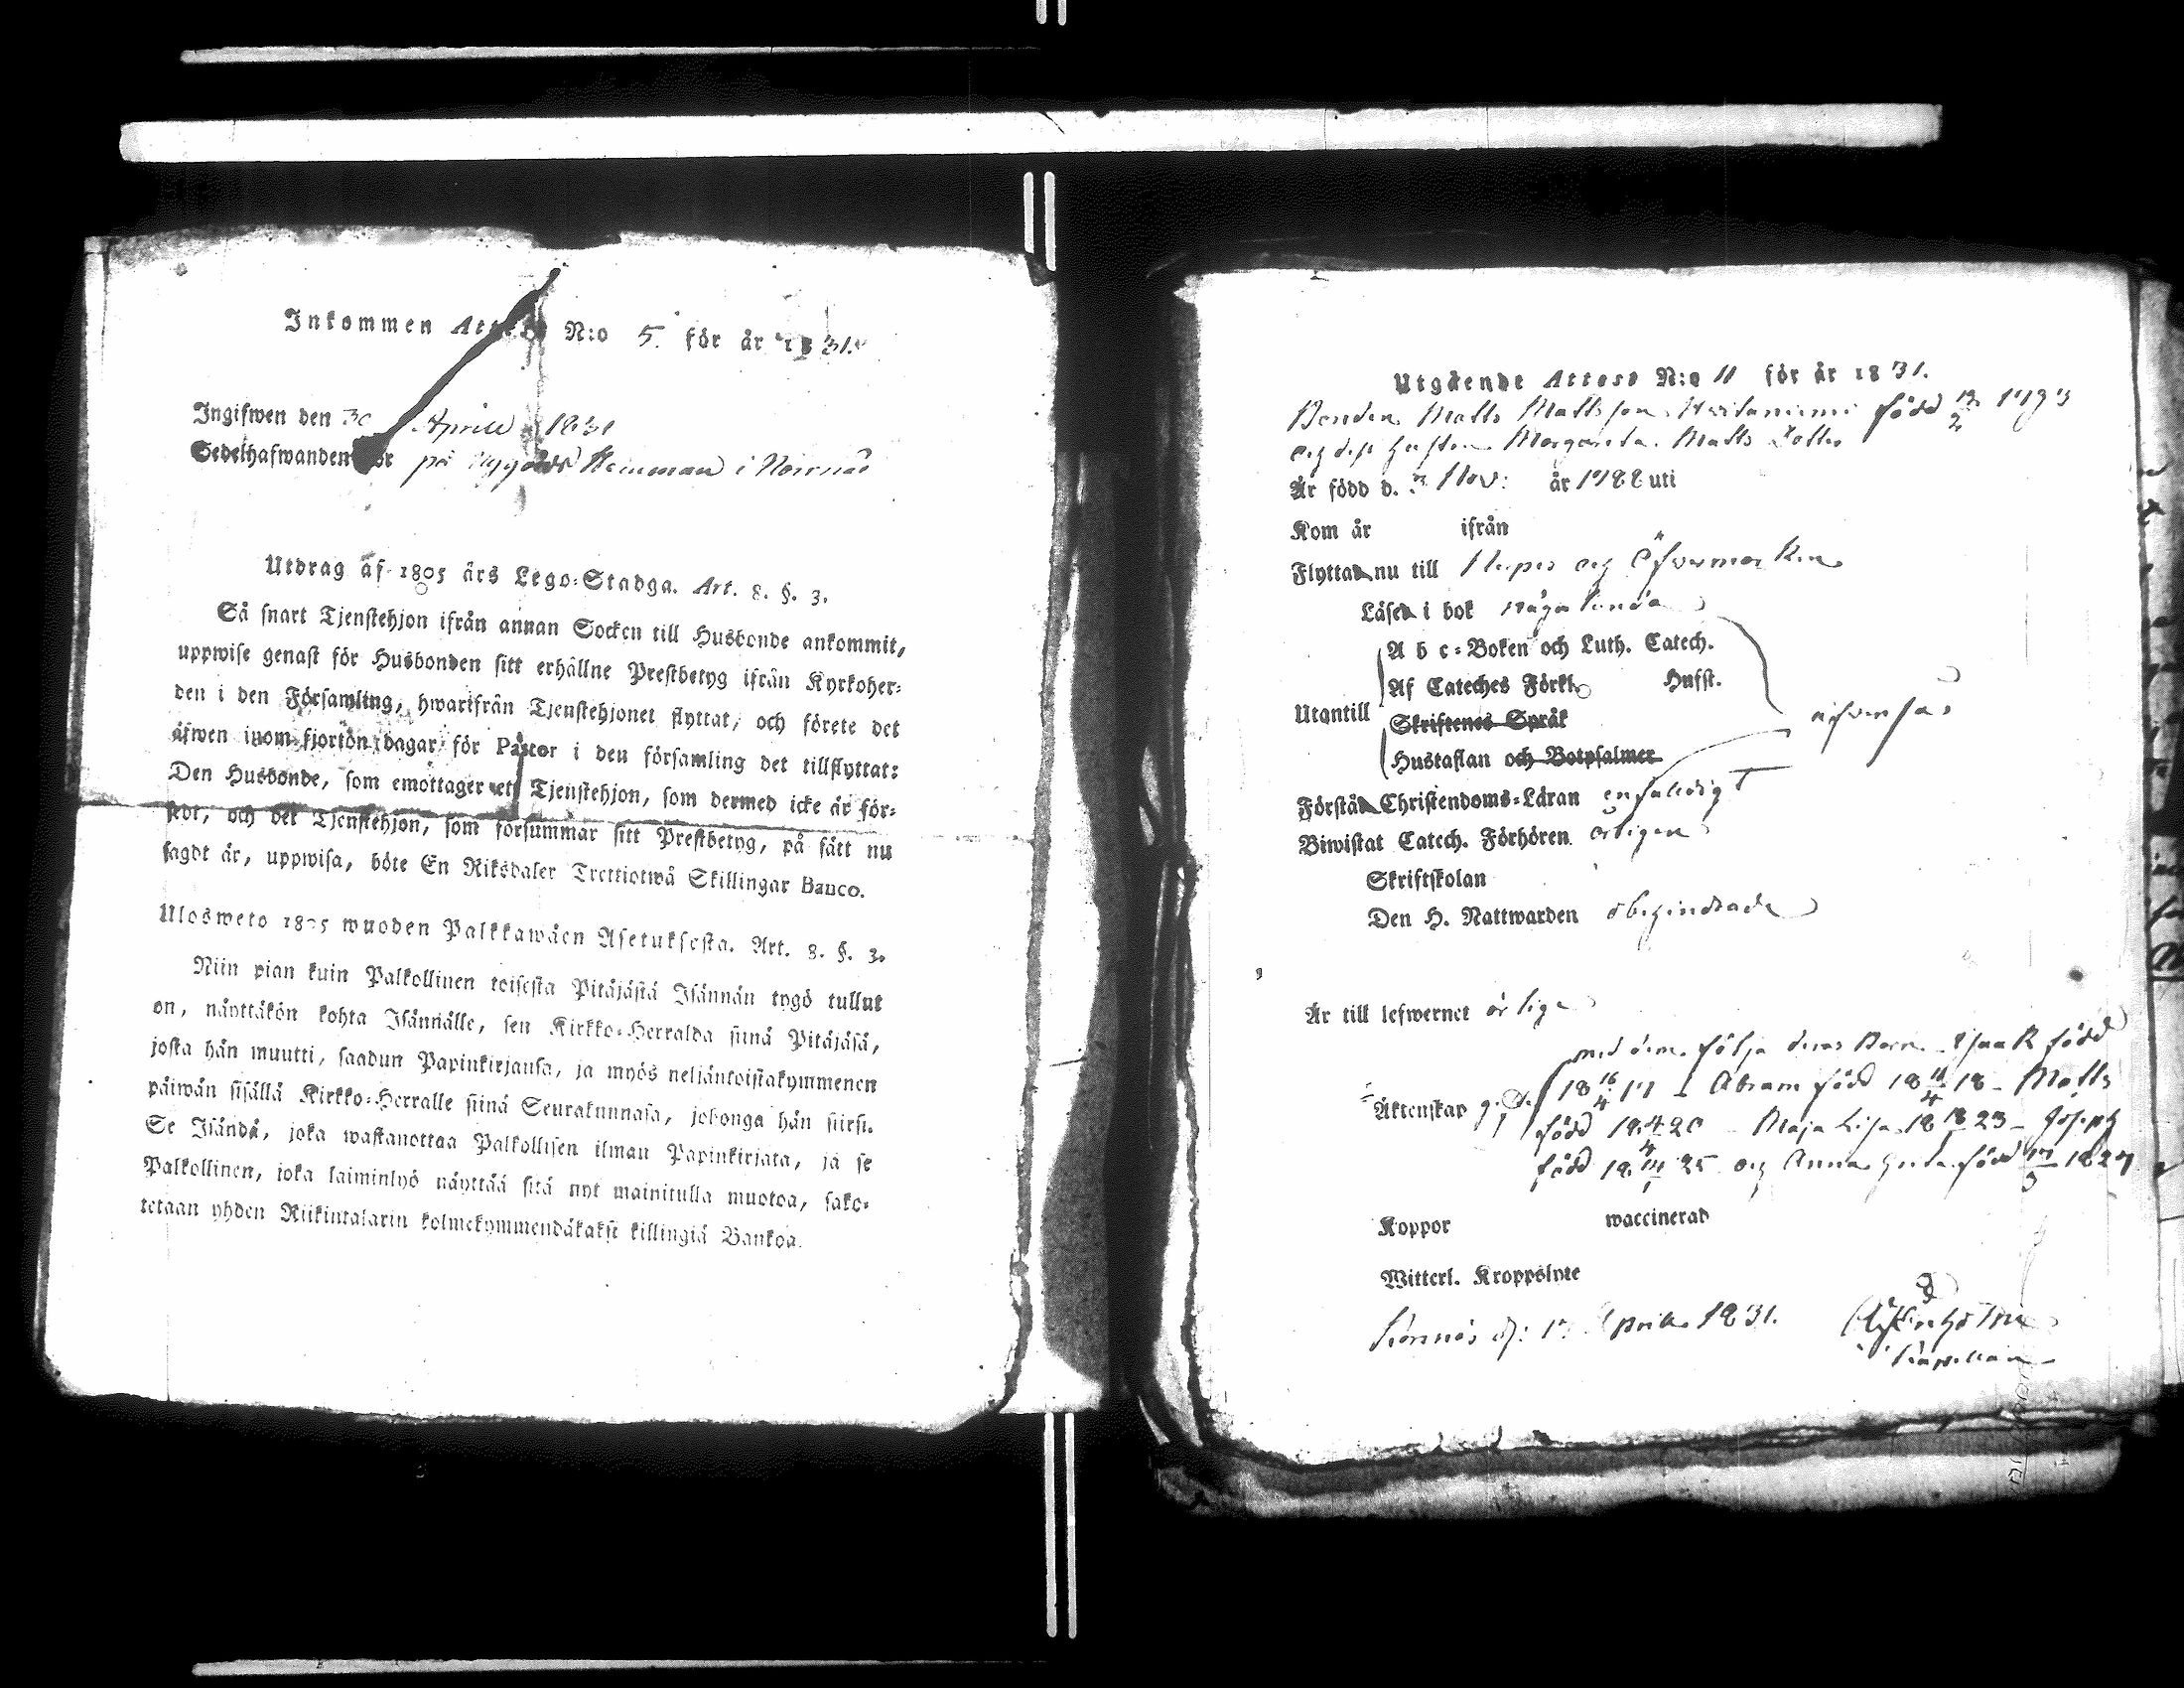 Inkommen Attest N:o 5. för år 1831.
Ingifwen den 30 Aprill 1831
Sedelhafwanden bor på Nygårds Hemman i Norrnäs
Utdrag af 1805 års Lego-Stadga. Art. 8. §. 3.
Så snart Tjenstehjon ifrån annan Socken till Husbonde ankommit,
uppwise genast för Husbonden sitt erhållne Prestbetyg ifrån Kyrkoher-
den i den Församling, hwarifrån Tjenstehjonet flyttat, och förete det
äfwen inom fjorton dagar för Pastor i den församling det tillflyttat:
Den Husbonde, som emottager ett Tjenstehjon, som dermed icke är för-
sedt, och det Tjenstehjon, som försummar sitt Prestbetyg, på sätt nu
sagdt är, uppwisa, böte En Riksdaler Trettiotwå Skillingar Banco.
Ulosweto 1805 wuoden Palkkawäen Asetuksesta. Art. 8. §. 3.
Niin pian kuin Palkollinen toisesta Pitäjästä Isännän tygö tullut
on, näyttäkön kohta Isännälle, sen Kirkko-Herralda siinä Pitäjäsä,
josta hän muutti, saadun Papinkirjansa, ja myös neljäntoistakymmenen
päiwän sisällä Kirkko-Herralle siinä Seurakunnasa, johonga hän siirsi.
Se Isändä, joka wastanottaa Palkollisen ilman Papinkirjata, ja se
Palkollinen, joka laiminlyö näyttää sitä nyt mainitulla muotoa, sako-
tetaan yhden Riikintalarin kolmekymmendäkakse killingiä Bankoa.
Utgående Attest N:o 11 för år 1831.
Bonden Matts Mattsson född 1793
och dess hustru Margareta Matts Dotter
Är född d. 3 Nov: år 1788 uti
Kom år ifrån
Flyttat nu till och Öfvermarken
Läser i bok någorlunda
A b c-Boken och Luth. Catech.
Af Cateches Förkl. Husst.
Utantill
Skriftenes Språk
Hustaflan och Botpsalmer
äfvenså
Förstår Christendoms-Läran enfaldigt
Biwistat Catech. Förhören ärligen
Skriftskolan
Den H. Nattwarden obehindrade
Är till lefwernet ärlige
med dem följa deras Barn Isaak född
18 16/4 17 - Abram född 18 11/4 18 - Matts
Äktenskap gifte
född 18 4/4 20 - Maja Lisa 18 18 23 - Joseph
född 18 14/1 25 och Anna Greta född 17/3 1827
Koppor waccinerad
Witterl. Kroppslyte
d: Aprill 1831.
Kapellan